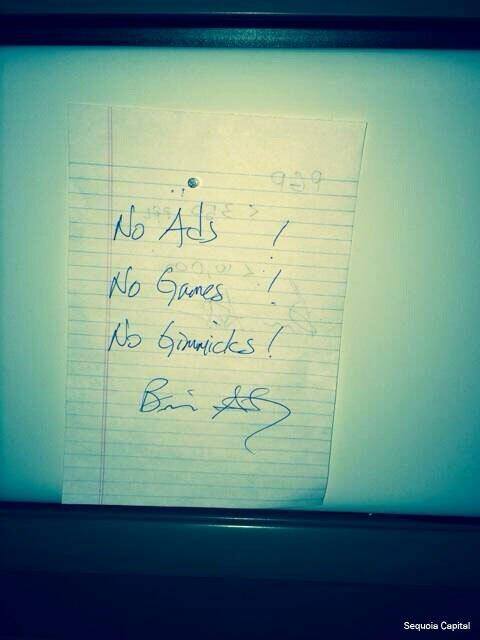 No Ads !
No Games !
No Gimmicks !
Sequoia Capital